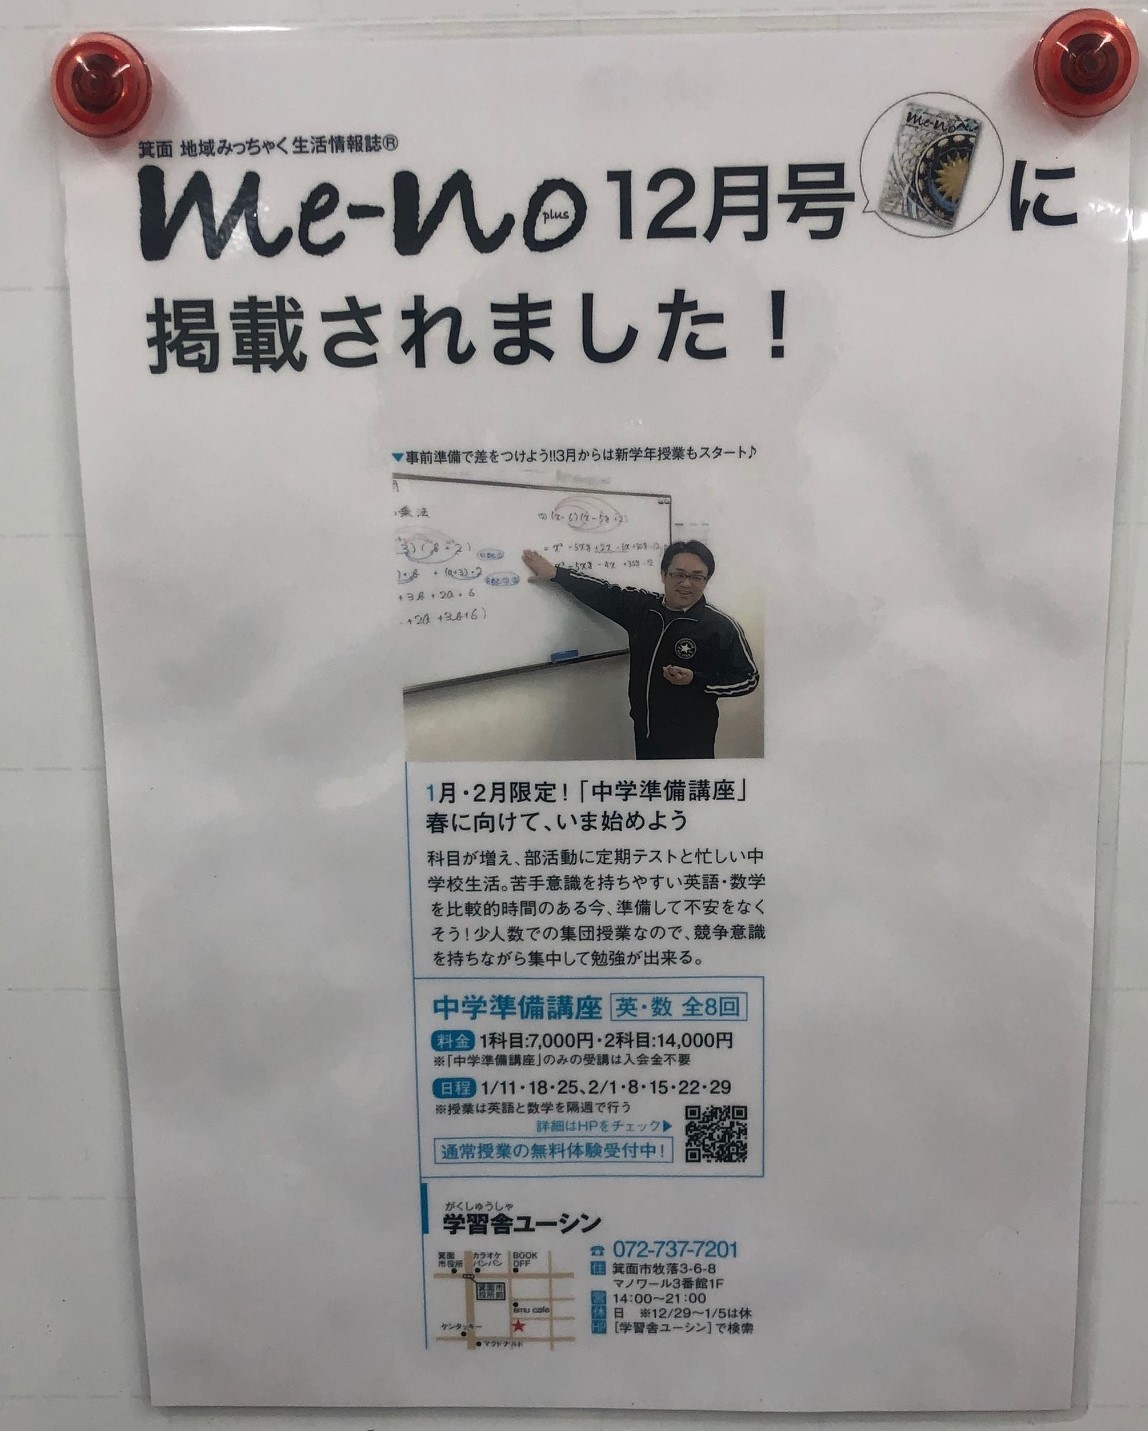 箕面 地域みっちゃく生活情報誌®
me-no plus 12月号 に
掲載されました！
▼事前準備で差をつけよう!!3月からは新学年授業もスタート♪
乗法
1月・2月限定！「中学準備講座」
春に向けて、いま始めよう
科目が増え、部活動に定期テストと忙しい中
学校生活。苦手意識を持ちやすい英語・数学
を比較的時間のある今、準備して不安をなく
そう！少人数での集団授業なので、競争意識
を持ちながら集中して勉強が出来る。
中学準備講座 英・数 全8回
料金 1科目:7,000円・2科目:14,000円
※「中学準備講座」のみの受講は入会金不要
日程 1/11・18・25、2/1・8・15・22・29
※授業は英語と数学を隔週で行う
詳細はHPをチェック▶
通常授業の無料体験受付中！
がくしゅうしゃ
学習舎ユーシン
箕面市役所
カラオケバンバン
BOOK OFF
箕面市役所前
emu cafe
ケンタッキー
マクドナルド
☎ 072-737-7201
住 箕面市牧落3-6-8
マノワール3番館1F
営 14:00〜21:00
休 日 ※12/29〜1/5は休
HP ［学習舎ユーシン］で検索